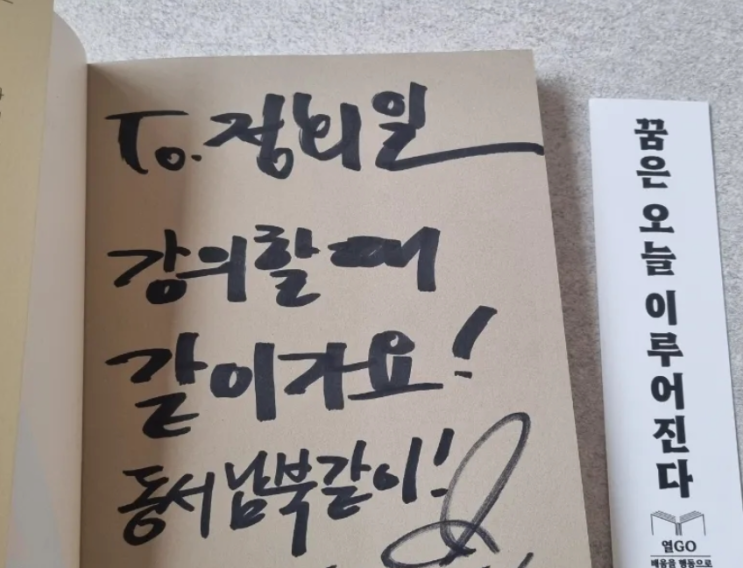 To. 정뇌일
강의할 때
같이가요!
동서남북같이!
꿈은 오늘 이루어진다
열GO
배움을 행동으로